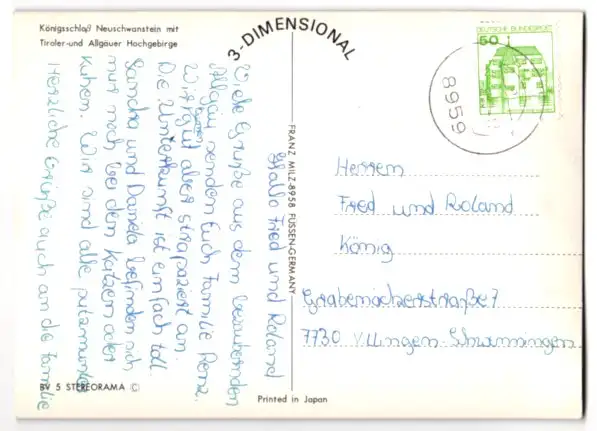 Königsschloß Neuschwanstein mit
Tiroler-und Allgäuer Hochgebirge
3-DIMENSIONAL
DEUTSCHE BUNDESPOST
50
8959
Hallo Fried und Roland
Viele Grüße aus dem bezaubernden
Allgäu senden Euch Familie Renz.
Wir kamen gut aber strapaziert an.
Die Unterkunft ist einfach toll.
Sandra und Daniela befinden sich
nur noch bei den Katzen oder
Kühen. Wir sind alle putzmunter
Herzliche Grüße auch an die Familie
FRANZ MILZ-8958 FÜSSEN-GERMANY
Herren
Fried und Roland
König
Grabenäckerstraße 7
7730 Villingen-Schwenningen
BV 5 STEREORAMA ©
Printed in Japan